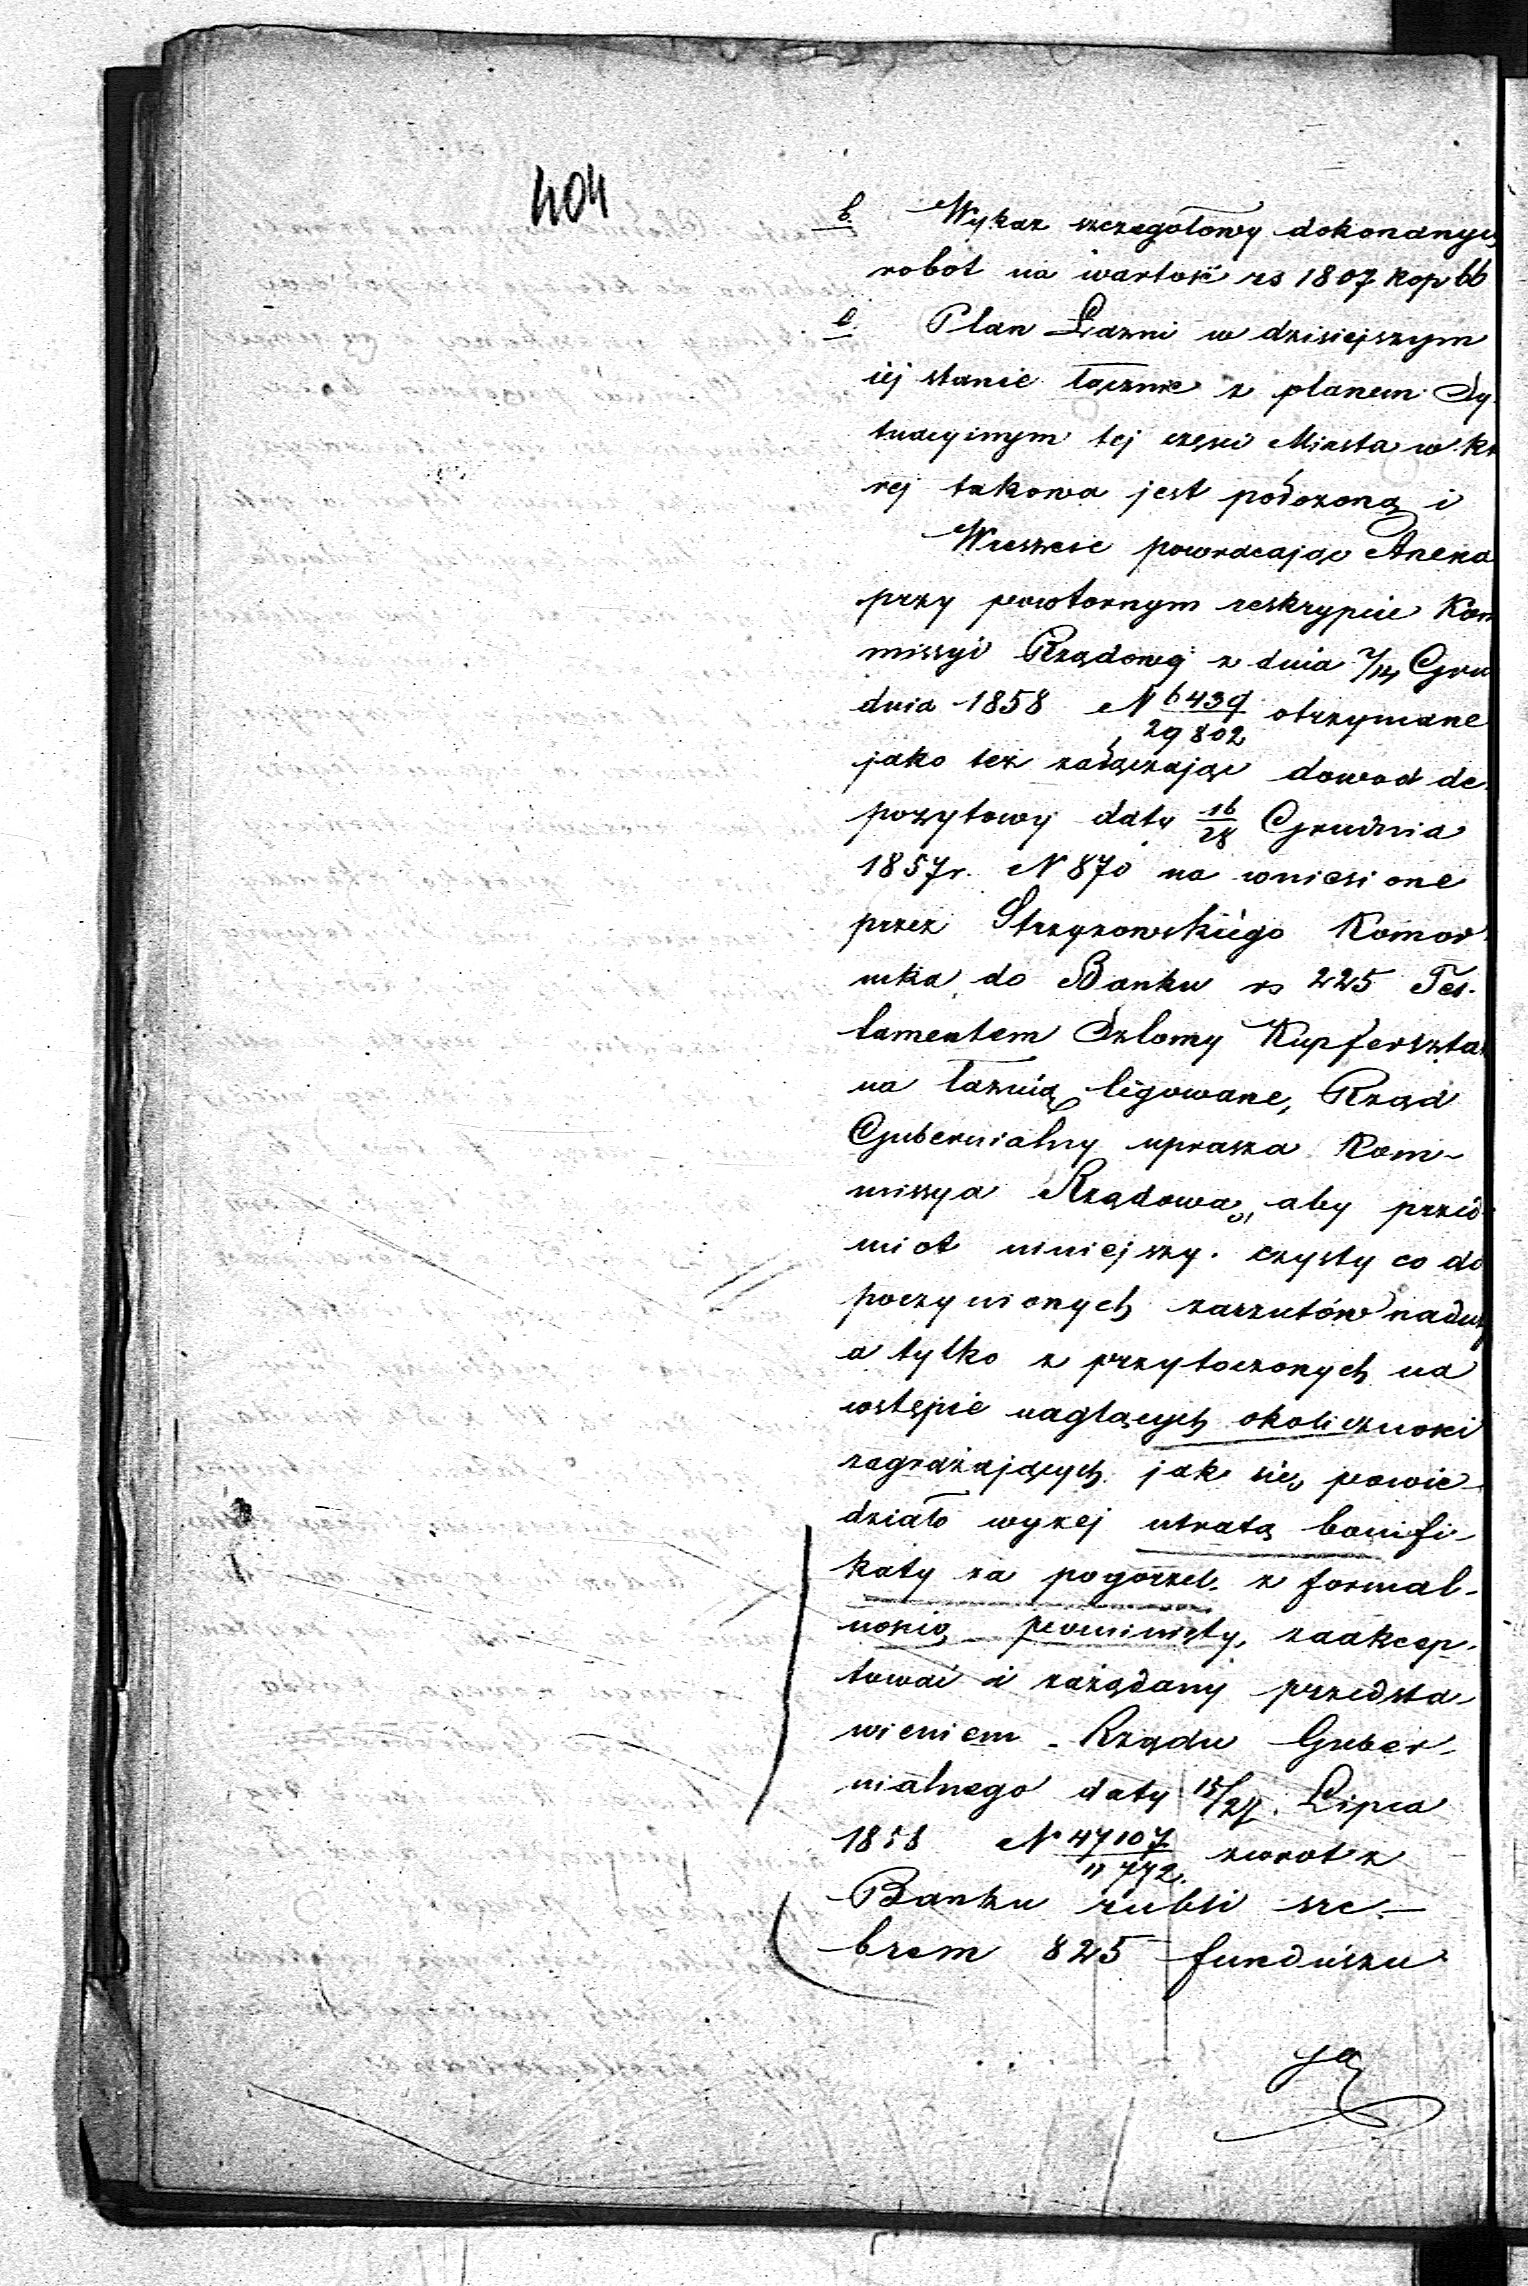 404
b. Wykaz szczegołowy dokonanych
robot na wartość rs 1807 kop 66
c. Plan Łazni w dzisiejszym
iéj stanie łącznie z planem Sy-
tuacyinym téj części Miasta w któ
rej takowa jest położoną i
Wreszcie powracając Anexa
przy powtornym reskrypcie Kom
missyi Rządowéj z dnia 2/14 Gru
dnia 1858 N 6439/29802 otrzymane
jako też załączając dowod de-
pozytowy daty 16/28 Grudnia
1857 r. N 870 na wniesione
przez Strzyzowskiégo Komor-
nika do Banku rs 225 Tes-
tamentem Szlomy Kupferszta
na łaznią legowane, Rząd
Gubernialny uprasza Kom-
missya Rządową, aby przed-
miot niniejszy czysty co do
poczynionych zarzutów naduż
a tylko z przytoczonych na
wstępie naglących okoliczności
zagrażających jak się powie-
działo wyżej utratą bonifi-
katy za pogorzel z formal-
nością pominięty, zaakcep-
tować i zażądany przedsta-
wieniem Rządu Guber-
nialnego daty 15/27 Lipca
1858 N 47107/11772 zwrot z
Banku rubli sre-
brem 825 funduszu